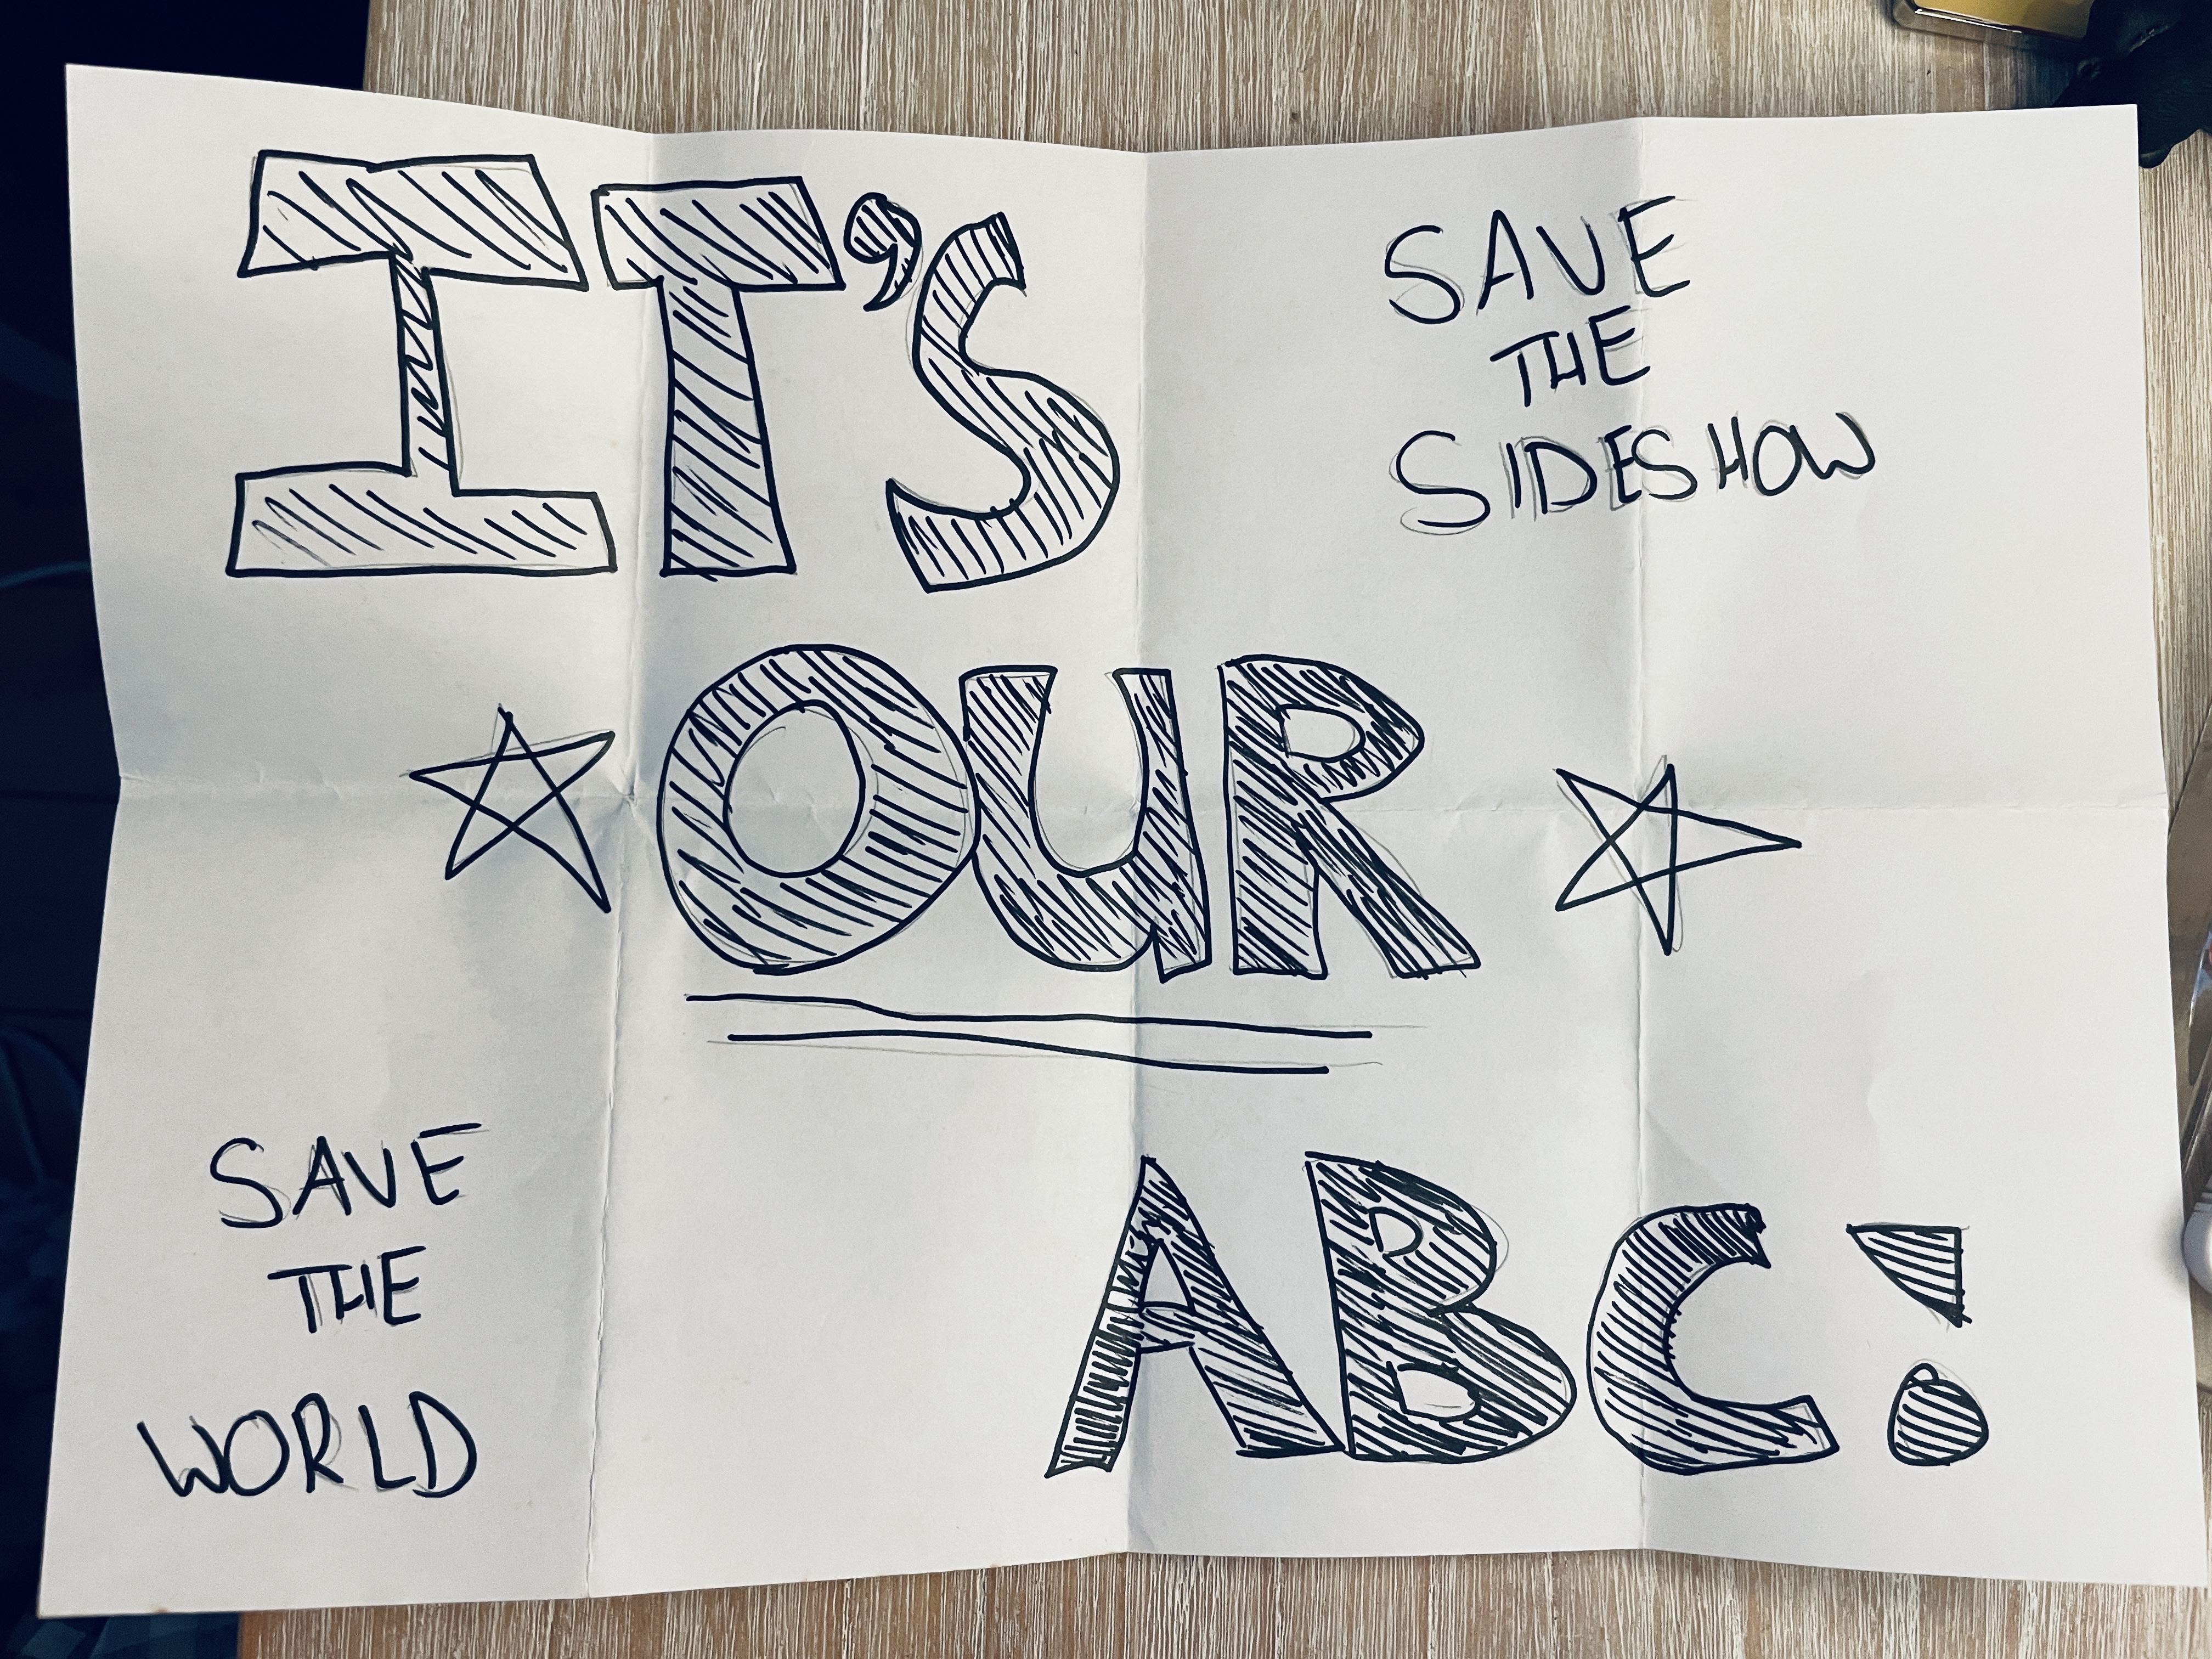 IT'S
SAVE
THE
SIDESHOW
OUR
SAVE
THE
WORLD
ABC!